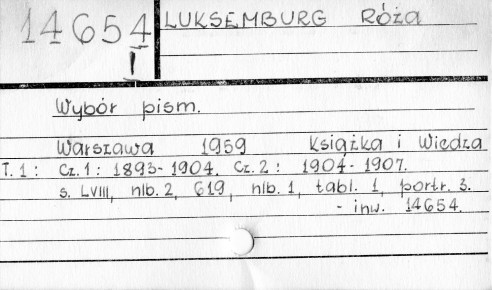 14654 LUKSEMBURG Róża
I
Wybór pism.
Warszawa 1959 Książka i Wiedza
T. 1: Cz. 1: 1893-1904. Cz. 2: 1904-1907.
s. LVIII, nlb. 2, 619, nlb. 1, tabl. 1, portr. 3.
- inw. 14654.